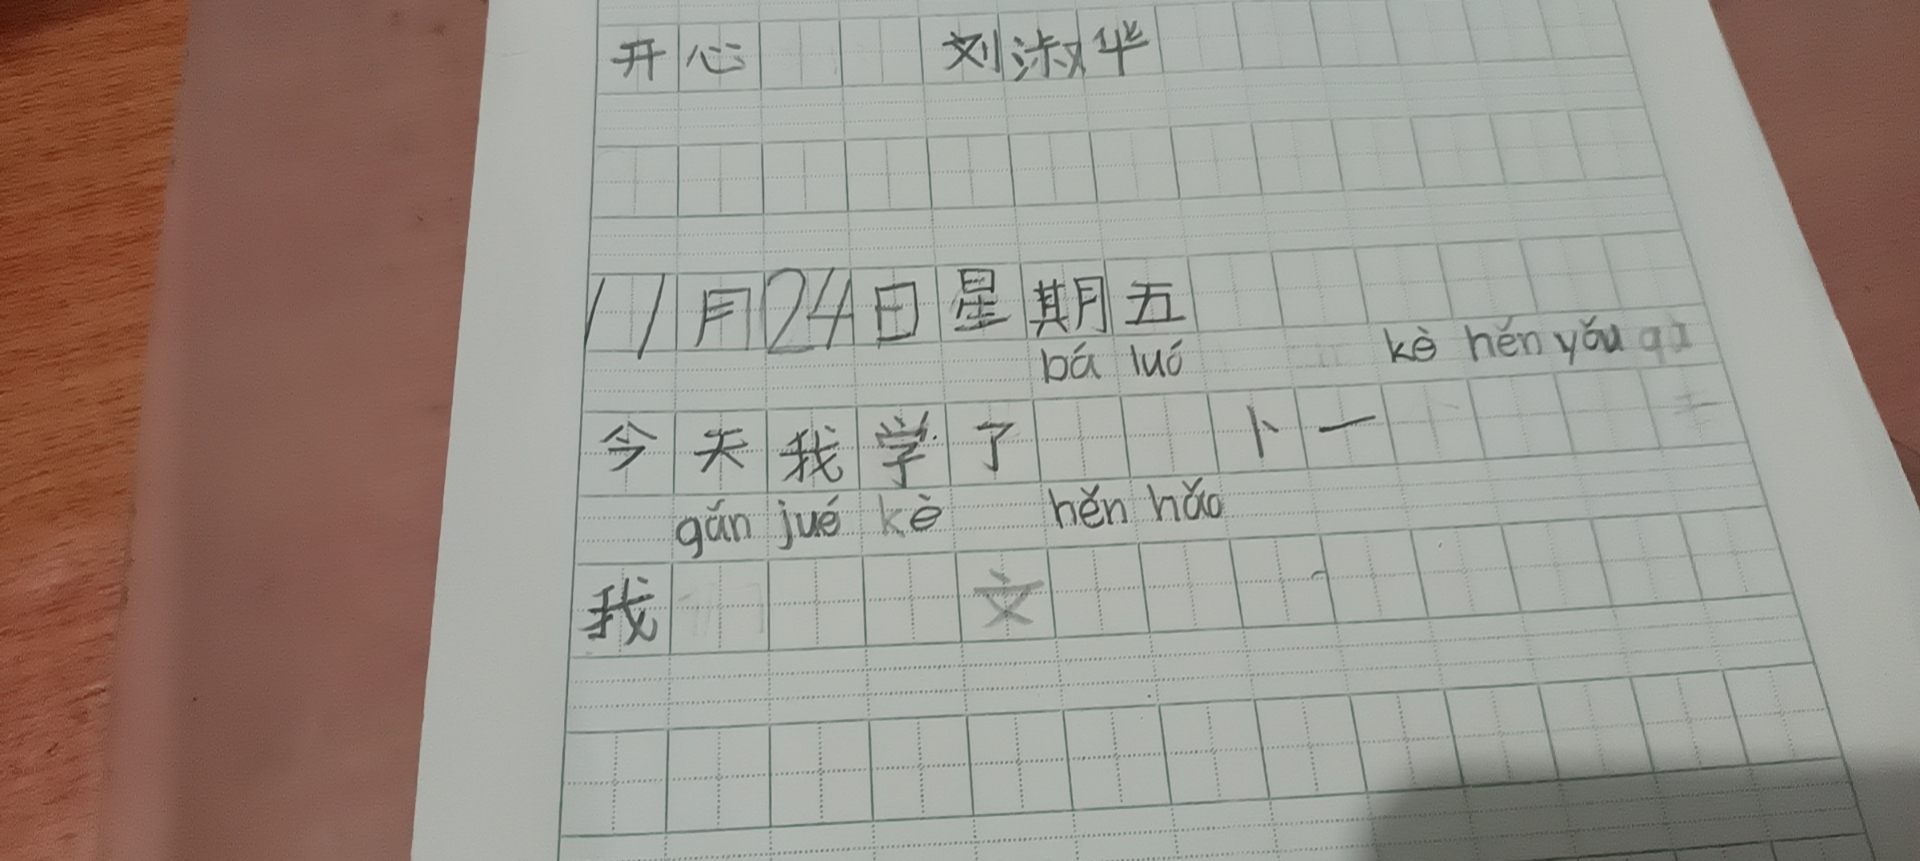 开心 刘淑华
11月24日星期五
bá luó kè hěn yǒu
今天我学了 卜一
gán jué kè hěn hǎo
我 文